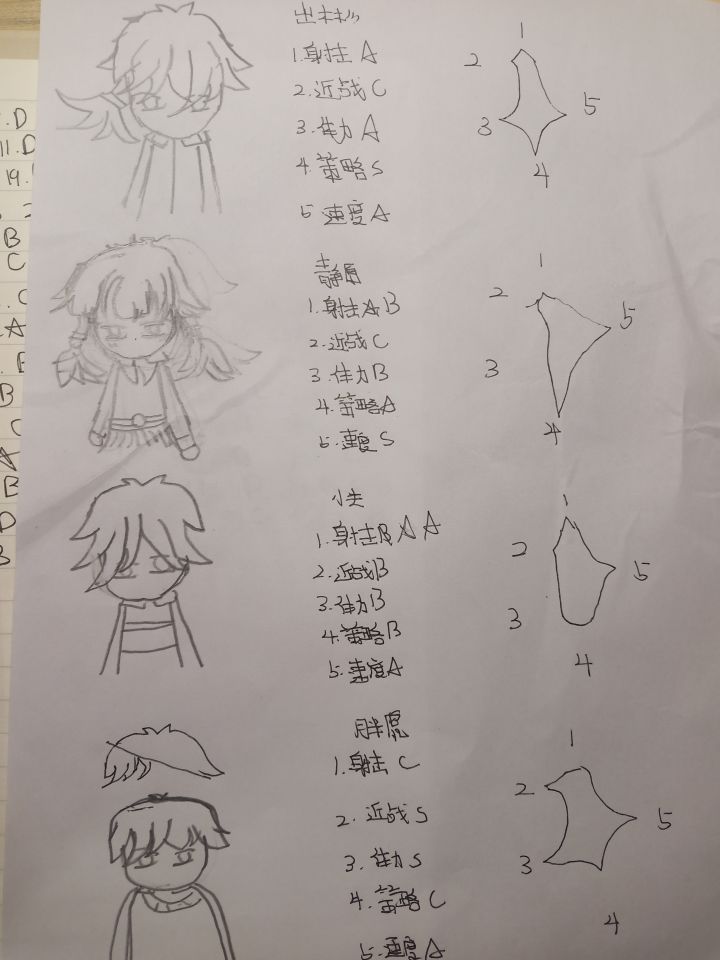 出木杉
1.射击 A
2.近战 C
3.体力 A
4.策略 S
5.速度 A
1
2
5
3
4
静香
1.射击 A B
2.近战 C
3.体力 B
4.策略 A
5.速度 S
1
2
5
3
4
小夫
1.射击 B A A
2.近战 B
3.体力 B
4.策略 B
5.速度 A
1
2
5
3
4
胖虎
1.射击 C
2.近战 S
3.体力 S
4.策略 C
5.速度 A
1
2
5
3
4
.D
11.D
19.
B
C
C
A
B
C
B
D